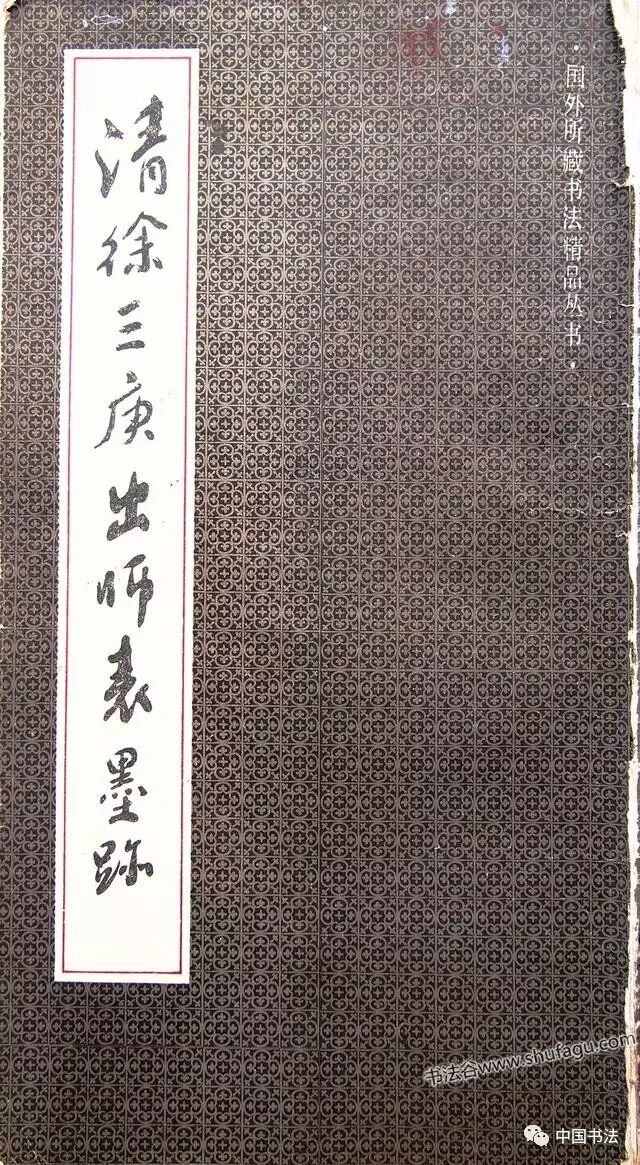 ·国外所藏书法精品丛书·
清徐三庚出师表墨跡
书法谷www.shufagu.com
中国书法